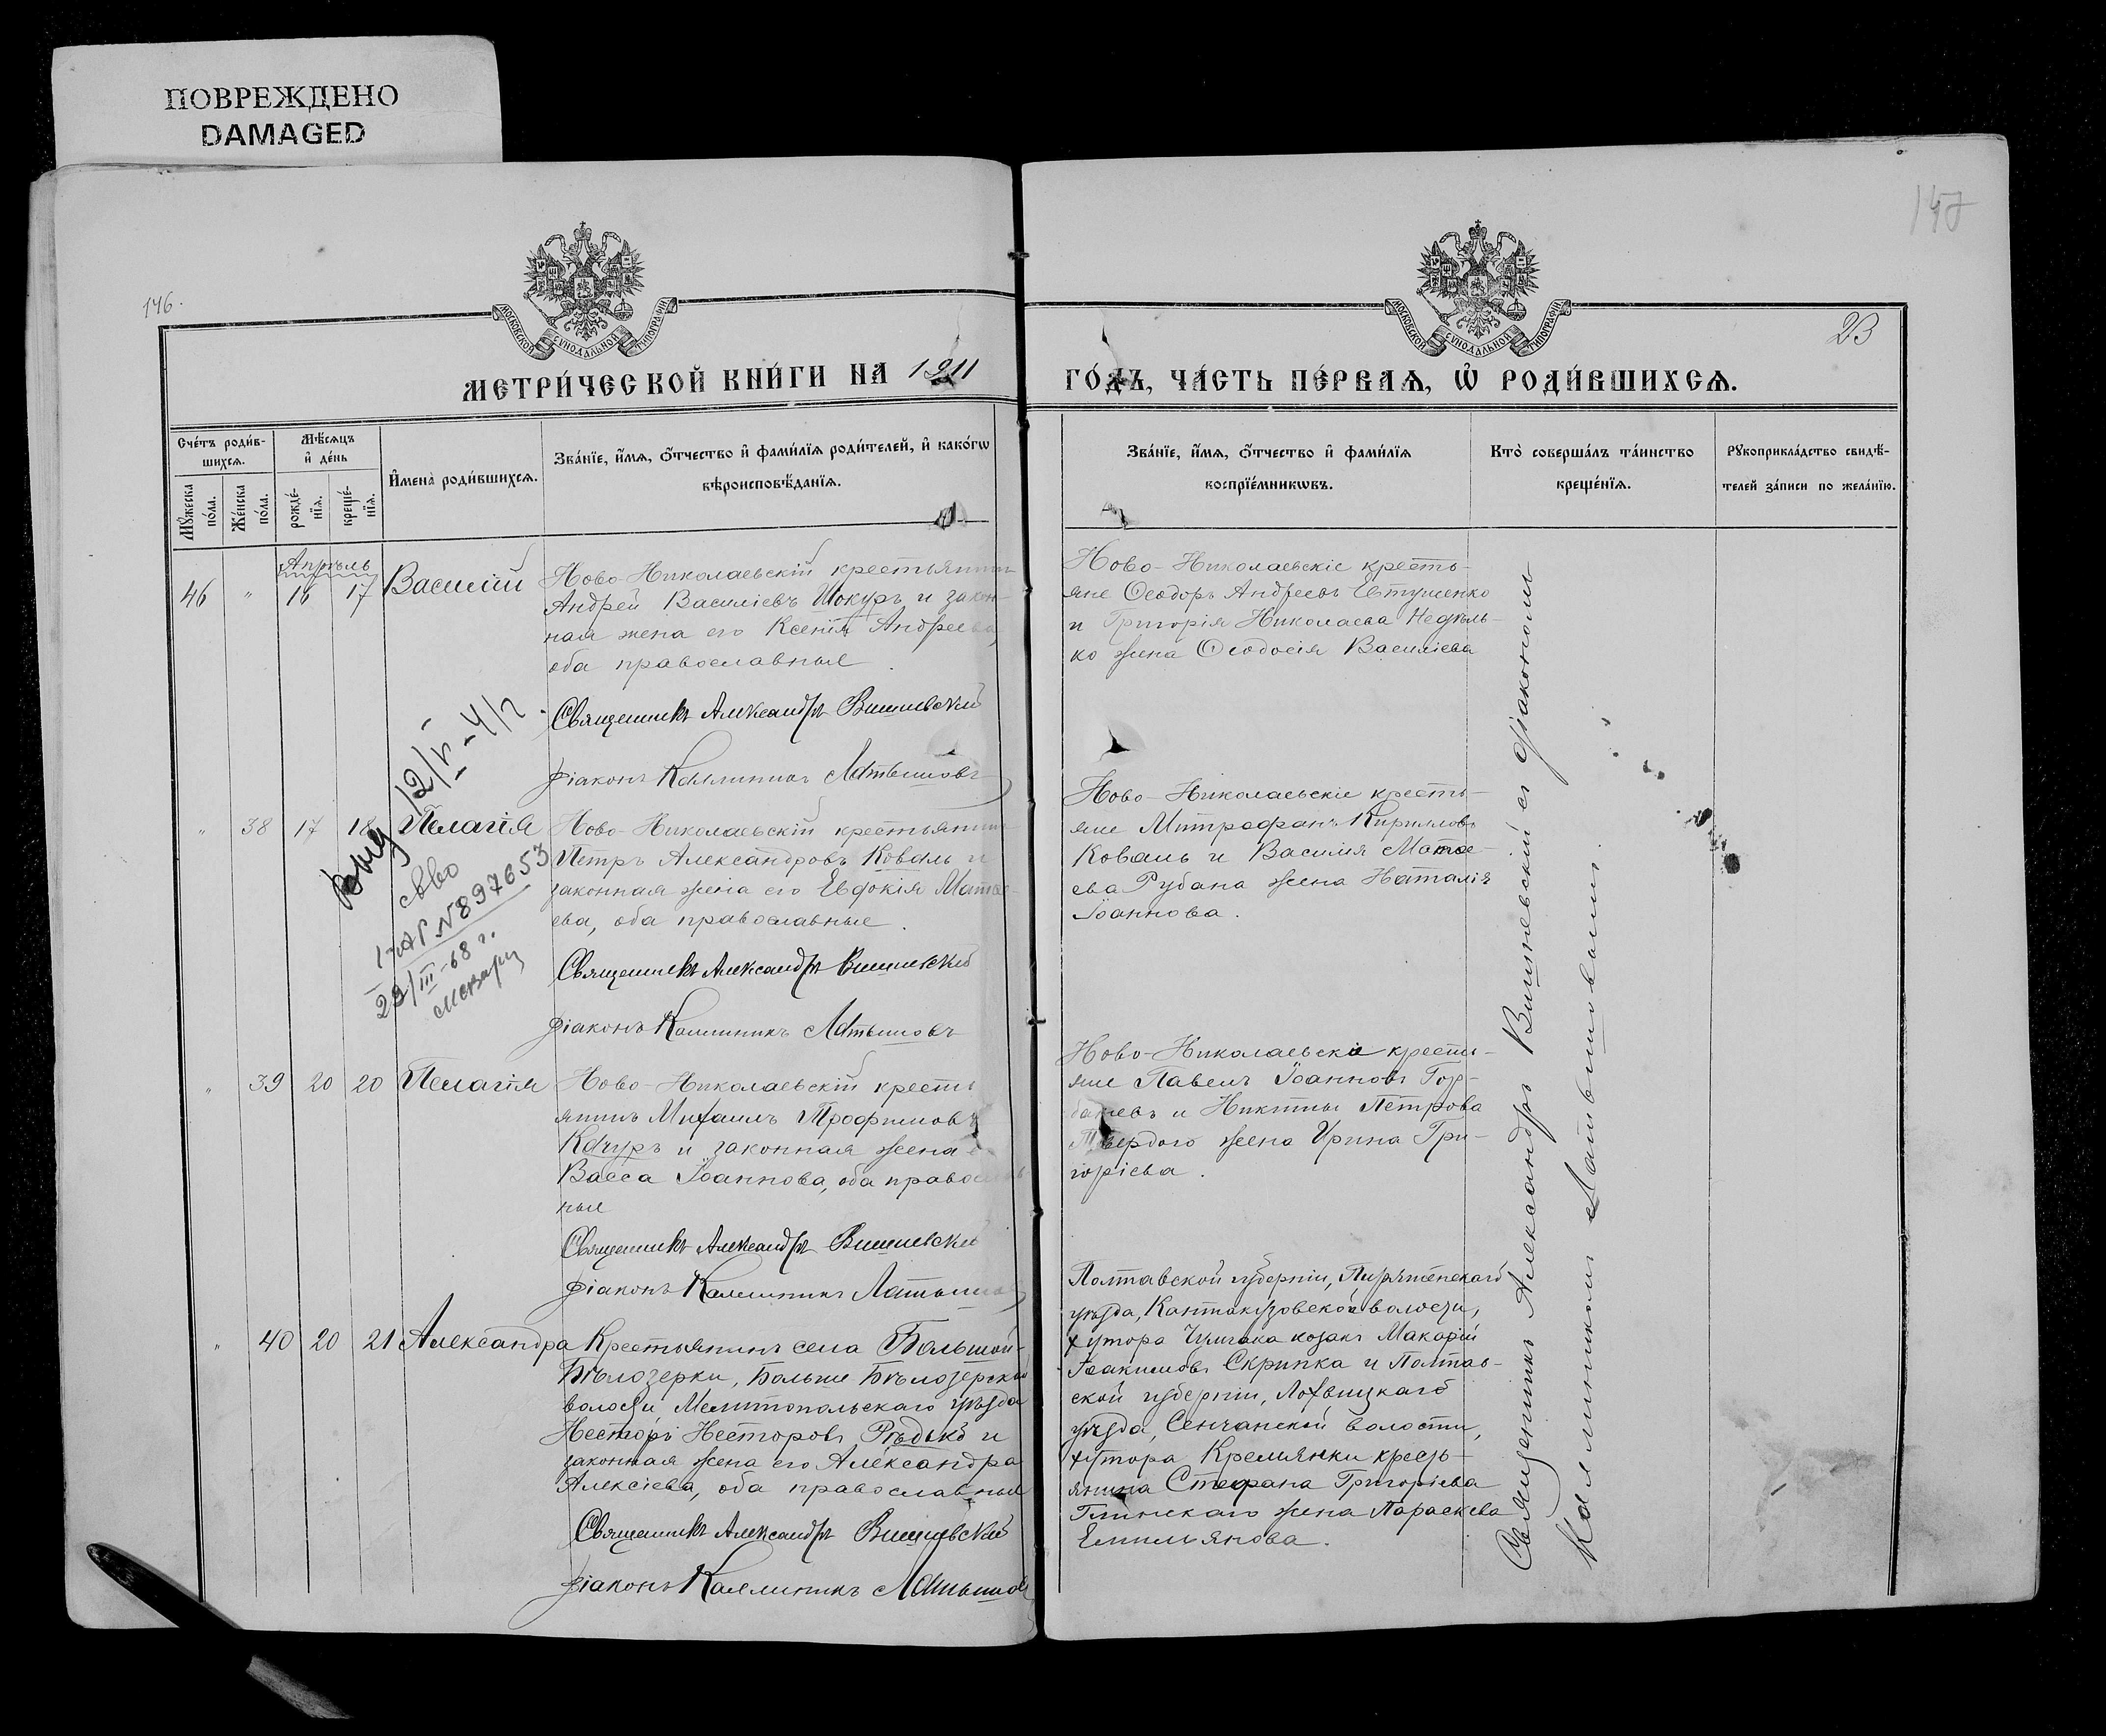 ПОВРЕЖДЕНО
DAMAGED
146.
147
23
МОСКОВСКОЙ СѴНОДАЛЬНОЙ ТИПОГРАФІИ
МОСКОВСКОЙ СѴНОДАЛЬНОЙ ТИПОГРАФІИ
МЕТРИ́ЧЕСКОЙ КНИ́ГИ НА 1911
ГО́ДЪ, ЧА́СТЬ ПЕ́РВАѦ, Ѡ҆ РОДИ́ВШИХСѦ.
Сче́тъ роди́в-
шихсѧ.
Мꙋ́жеска
по́ла.
Же́нска
по́ла.
Мѣ́сѧцъ
и҆ де́нь
рожде́-
нїѧ.
креще́-
нїѧ.
И҆мена̀ роди́вшихсѧ.
Зва́нїе, и҆́мѧ, ѻ҆́тчество и҆ фами́лїѧ роди́телей, и҆ како́гѡ
вѣроисповѣ́данїѧ.
Зва́нїе, и҆́мѧ, ѻ҆́тчество и҆ фами́лїѧ
воспрїе́мникѡвъ.
Кто̀ соверша́лъ та́инство
креще́нїѧ.
Рꙋкоприкла́дство свидѣ́-
телей за́писи по жела́нїю.
Апрѣль
46 " 16 17 Василій
Ново-Николаевскій крестьянинъ
Андрей Василіевъ Шокуръ и закон-
ная жена его Ксенія Андреева,
оба православные.
Священникъ Александръ Вишневскій
Діаконъ Каллиникъ Латышовъ
Ново-Николаевскіе кресть-
яне Ѳеодоръ Андреевъ Евтушенко
и Григорія Николаева Недѣль-
ко жена Ѳеодосія Василіева
" 38 17 18 Пелагія
Ново-Николаевскій крестьянинъ
Петръ Александровъ Коваль и
законная жена его Евдокія Матѳе-
ева, оба православные.
Священникъ Александръ Вишневскій
Діаконъ Каллиникъ Латышовъ
Ново-Николаевскіе кресть-
яне Митрофанъ Кирилловъ
Коваль и Василія Матѳе-
ева Рубана жена Наталія
Іоаннова.
выд 12/V-41г.
св-во
№ 897653
29/III-68 г.
" 39 20 20 Пелагія
Ново-Николаевскій кресть
янинъ Михаилъ Трофимовъ
Качуръ и законная жена
Васса Іоаннова, оба православ
ные
Священникъ Александръ Вишневскій
Діаконъ Каллиникъ Латышовъ
Ново-Николаевскіе кресть-
яне Павелъ Іоанновъ Гор-
бачевъ и Никиты Петрова
Твердого жена Ирина Гри-
горіева.
" 40 20 21 Александра
Крестьянинъ села Большой-
Бѣлозерки, Больше Бѣлозерской
волости Мелитопольскаго уѣзда
Несторъ Несторовъ Рѣдько и
законная жена его Александра
Алексіева, оба православные
Священникъ Александръ Вишневскій
Діаконъ Каллиникъ Латышовъ
Полтавской губерніи, Пирятинскаго
уѣзда, Кантакузовской волости,
хутора Чумгака козакъ Макарій
Іоакимовъ Скрипка и Полтав-
ской губерніи, Лохвицкаго
уѣзда, Сенчанской волости,
хутора Кремянки кресть-
янина Стефана Григоріева
Глинскаго жена Параскева
Емильянова.
Священникъ Александръ Вишневскій съ діакономъ
Каллиникомъ Латышовымъ.